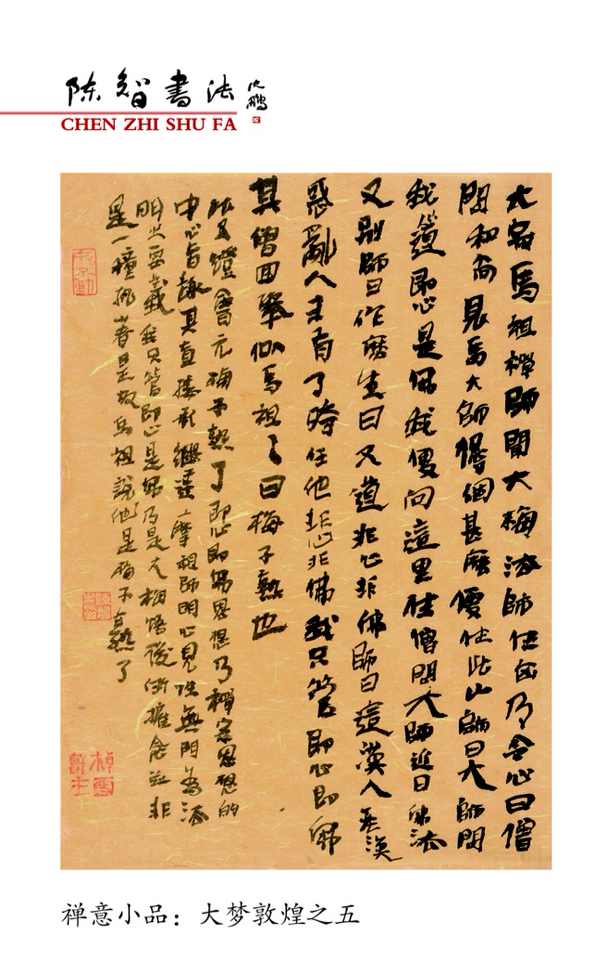 陈智書法
沈鹏
CHEN ZHI SHU FA
大寂馬祖禪師聞大梅法師住山乃令心曰僧
問和尚見馬大師得個甚麼便住此山師曰大師問
我道即心是佛我便向這里住僧問大師近日佛法
又別師曰作麼生曰又道非心非佛師曰這漢人
惑亂人未有了時任他非心非佛我只管即心即佛
其僧回舉似馬祖々曰梅子熟也
此五燈會元梅子熟了即心即佛思想乃禪宗思想的
中心旨趣其直接承繼達摩祖師明心見性無門為法
我只管即心是佛乃是大梅悟後
是一種是故馬祖說他是梅子真熟了
禅意小品：大梦敦煌之五